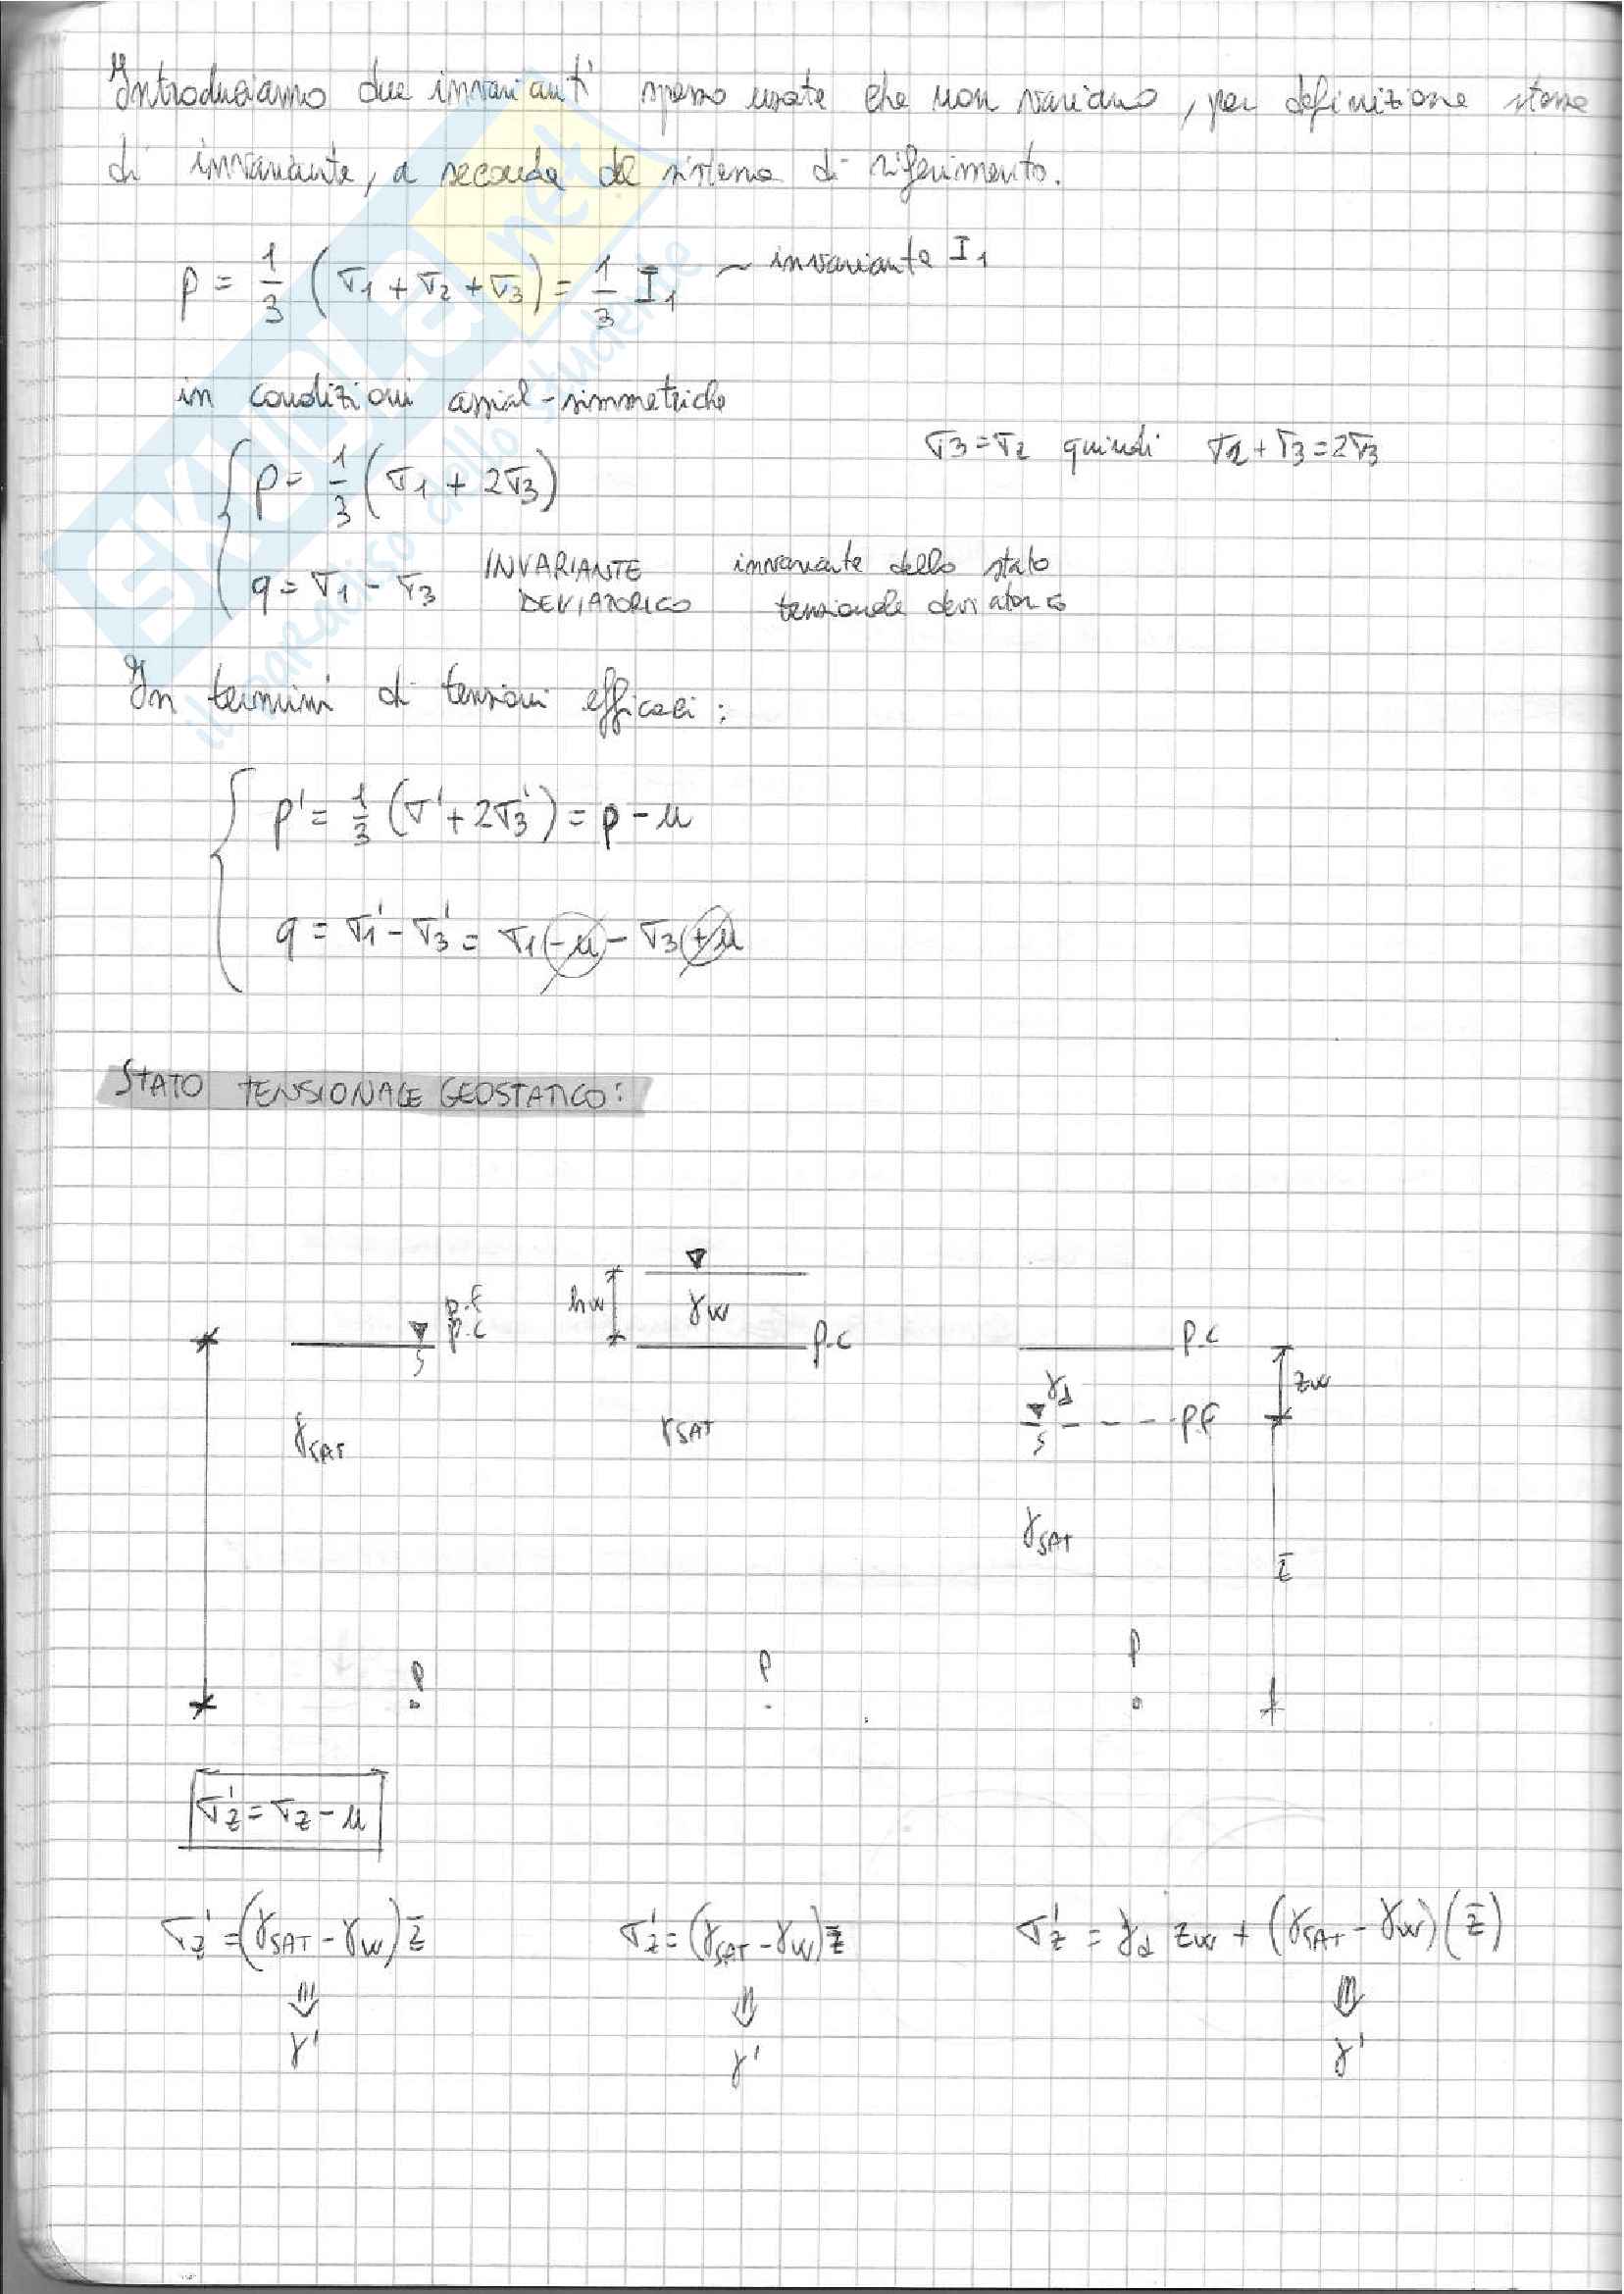 Introduciamo due invarianti spesso usate che non variano, per definizione stessa
di invariante, a seconda del sistema di riferimento.
p = 1/3 (σ1 + σ2 + σ3) = 1/3 I1 ~ invariante I1
in condizioni assial-simmetriche
p = 1/3 (σ1 + 2σ3) σ3 = σ2 quindi σ2 + σ3 = 2σ3
q = σ1 - σ3 INVARIANTE DEVIATORICO invariante dello stato
tensionale deviatorico
In termini di tensioni efficaci:
p' = 1/3 (σ' + 2σ3') = p - u
q = σ1' - σ3' = σ1 - u - σ3 + u
STATO TENSIONALE GEOSTATICO:
p.f
p.c
hw
γw
p.c
p.c
zw
γd
p.f
γSAT
γSAT
γSAT
z̄
P
P
P
σz' = σz - u
σz' = (γSAT - γw) z̄
σz' = (γSAT - γw) z̄
σz' = γd zw + (γSAT - γw)(z̄)
⇓
⇓
⇓
γ'
γ'
γ'
SKUOLA.net
il paradiso dello studente